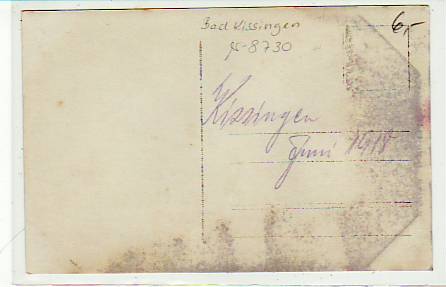 Bad Kissingen
8730
6,-
Kissingen
Juni 1918